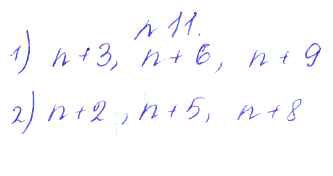 n 11.
1) n+3, n+6, n+9
2) n+2, n+5, n+8